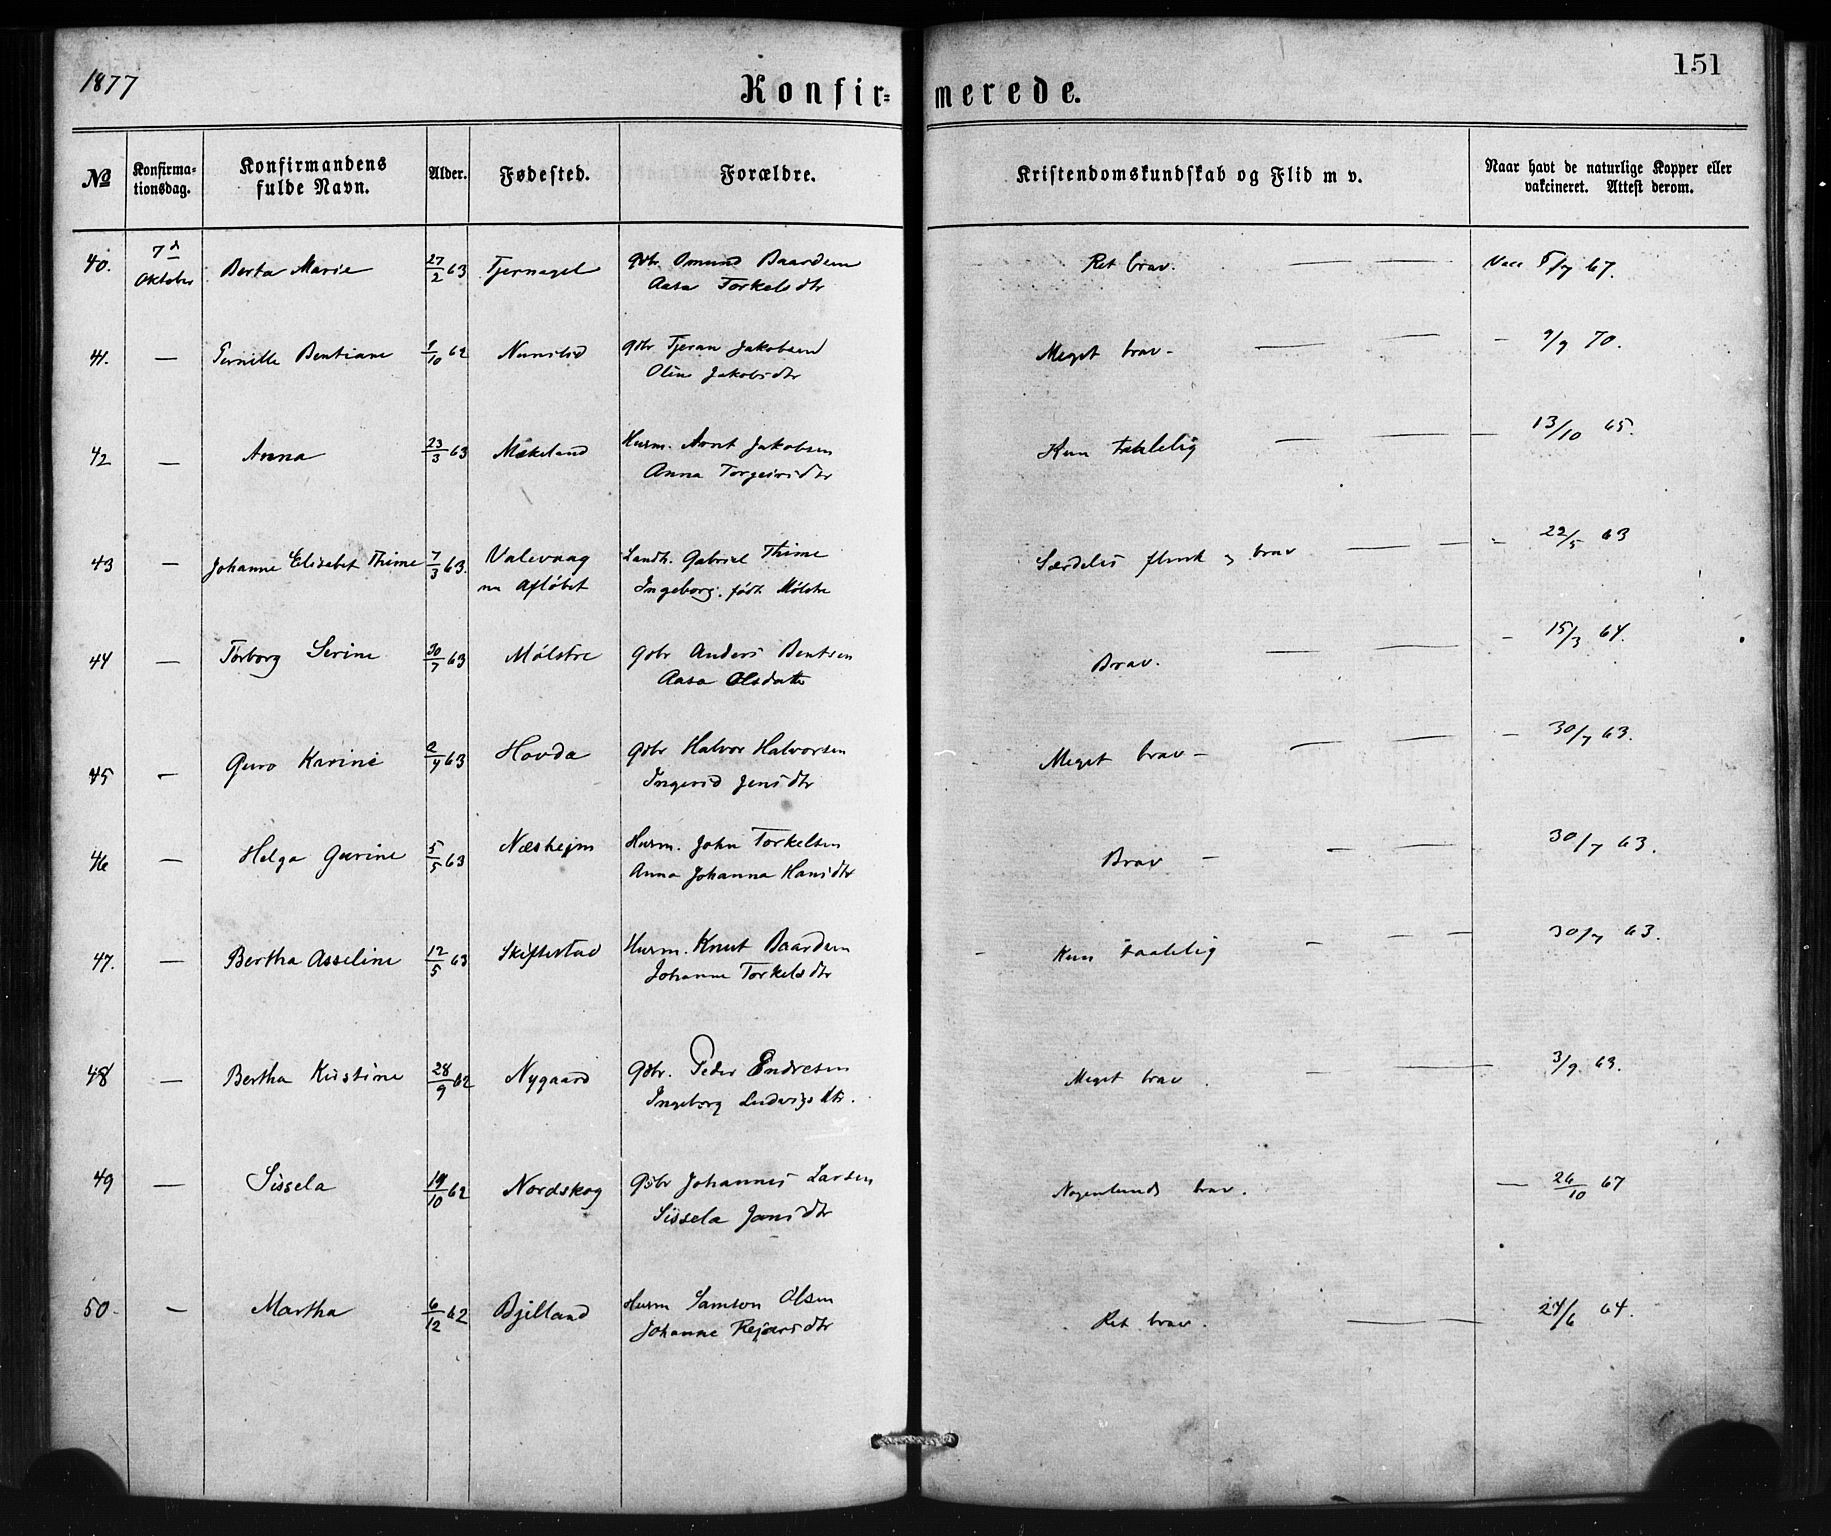 1877
151
Konfir-
merede.
No
Konfirma-
tionsdag.
Konfirmandens
fulde Navn.
Alder.
Fødested.
Forældre.
Kristendomskundskab og Flid m v.
Naar havt de naturlige Kopper eller
vakcineret. Attest derom.
40. 7d Oktober Berta Marie 27/2 63 Tjernagel Gbr. Omund Baardsen Ret brav. — — Vacc 5/7 67.
Aasa Torkelsdtr
41. — Pernille Bentiane 1/10 62 Gbr Tjeran Jakobsen Meget brav - — — - 9/9 70.
Olene Jakobsdtr
42 — Anna 23/3 63 Mækeland Husm. Arnt Jakobsen Kun taalelig — — — 13/10 65.
Anna Torgeirsdtr
43 — Johanne Elisabet Thime 7/3 63. Valevaag Landh. Gabriel Thime Særdeles flink og brav — — - 22/5 63
nu Afløbet Ingeborg. født Mølstre
44 — Torborg Serine 30/7 63 Mølstre Gbr Anders Bentsen Brav. — — - 15/3 64.
Aasa Olsdatter
45 — Guro Karine 2/4 63 Hovda Gbr Halvor Halvorsen Meget brav - — — - 30/7 63.
Ingerid Jensdtr
46 — Helga Gurine 5/5 63 Næsheim Husm. John Torkelsen Brav - - — — 30/7 63.
Anna Johanna Hansdtr
47. — Bertha Asseline 12/5 63 Skiftestad Husm. Knut Baardsen Kun taalelig - — — 30/7 63.
Johanne Torkelsdtr
48 — Bertha Kristine 28/9 62 Nygaard Gbr. Peder Endresen Meget brav. - — — 3/9 63.
Ingeborg Ludvigsdtr.
49 — Sissela 19/10 62 Nordskog Gbr Johannes Larsen Nogenlunde brav. — 26/10 67
Sissela Jansdtr
50. — Martha 6/12 62 Bjelland Husm Samson Olsen Ret brav. — — 24/6 64.
Johanne